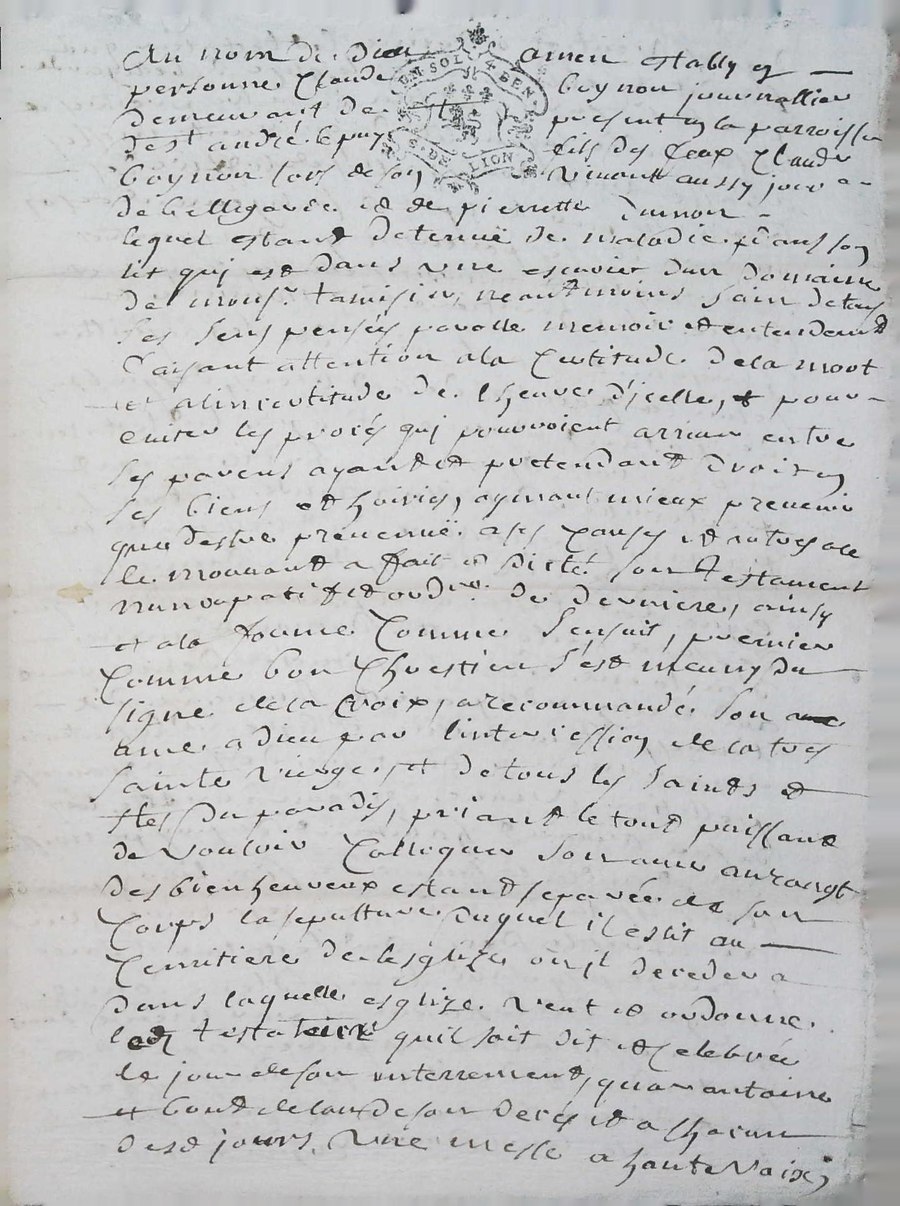 Au nom de dieu amen estably en
personne Claude boynon journallier
demeurant de present en la parroisse
de st andré le puy fils de feux Claude
boynon lors de son vivant aussy jour
de bellegarde et de pierrette
lequel estant detenuë de maladie dans son
lit qui est dans une escurier dun domaine
de monsr. tamisier, neantmoins sain de tous
ses sens pensées parolle memoire et entendement
faisant attention a la Certitude de la mort
et a lincertitude de lheure d'jcelle, et pour
eviter les procés quj pourroient arriver entre
ses parens ayant et pretendant droit en
ses biens et hoiries, aymant mieux prevenir
que destre prevenuë a ses Causes et autres a ce
le mouvant a fait et dicté son testament
nuncupatif et ordre. de derniere, ainsy
et a la forme Comme sensuit, premier
Comme bon Chrestien s'est muny du
signe de la Croix, a recommandé son
ame a dieu par lintercession de la tres
sainte vierge, et de tous les saints et
stes du paradis, priant le tout puissant
de vouloir Colloquer son ame au rangt
des bienheureux estant separée de son
Corps la sepulture duquel il eslit au
Cemitiere de lesglize ou jl decedera
dans laquelle esglize veut et ordonne
led testateur quil soit dit et Celebrée
le jour de son enterrement, quarantaine
et bout de lan de son decés et a chacun
desd jours, une messe a haute voix,